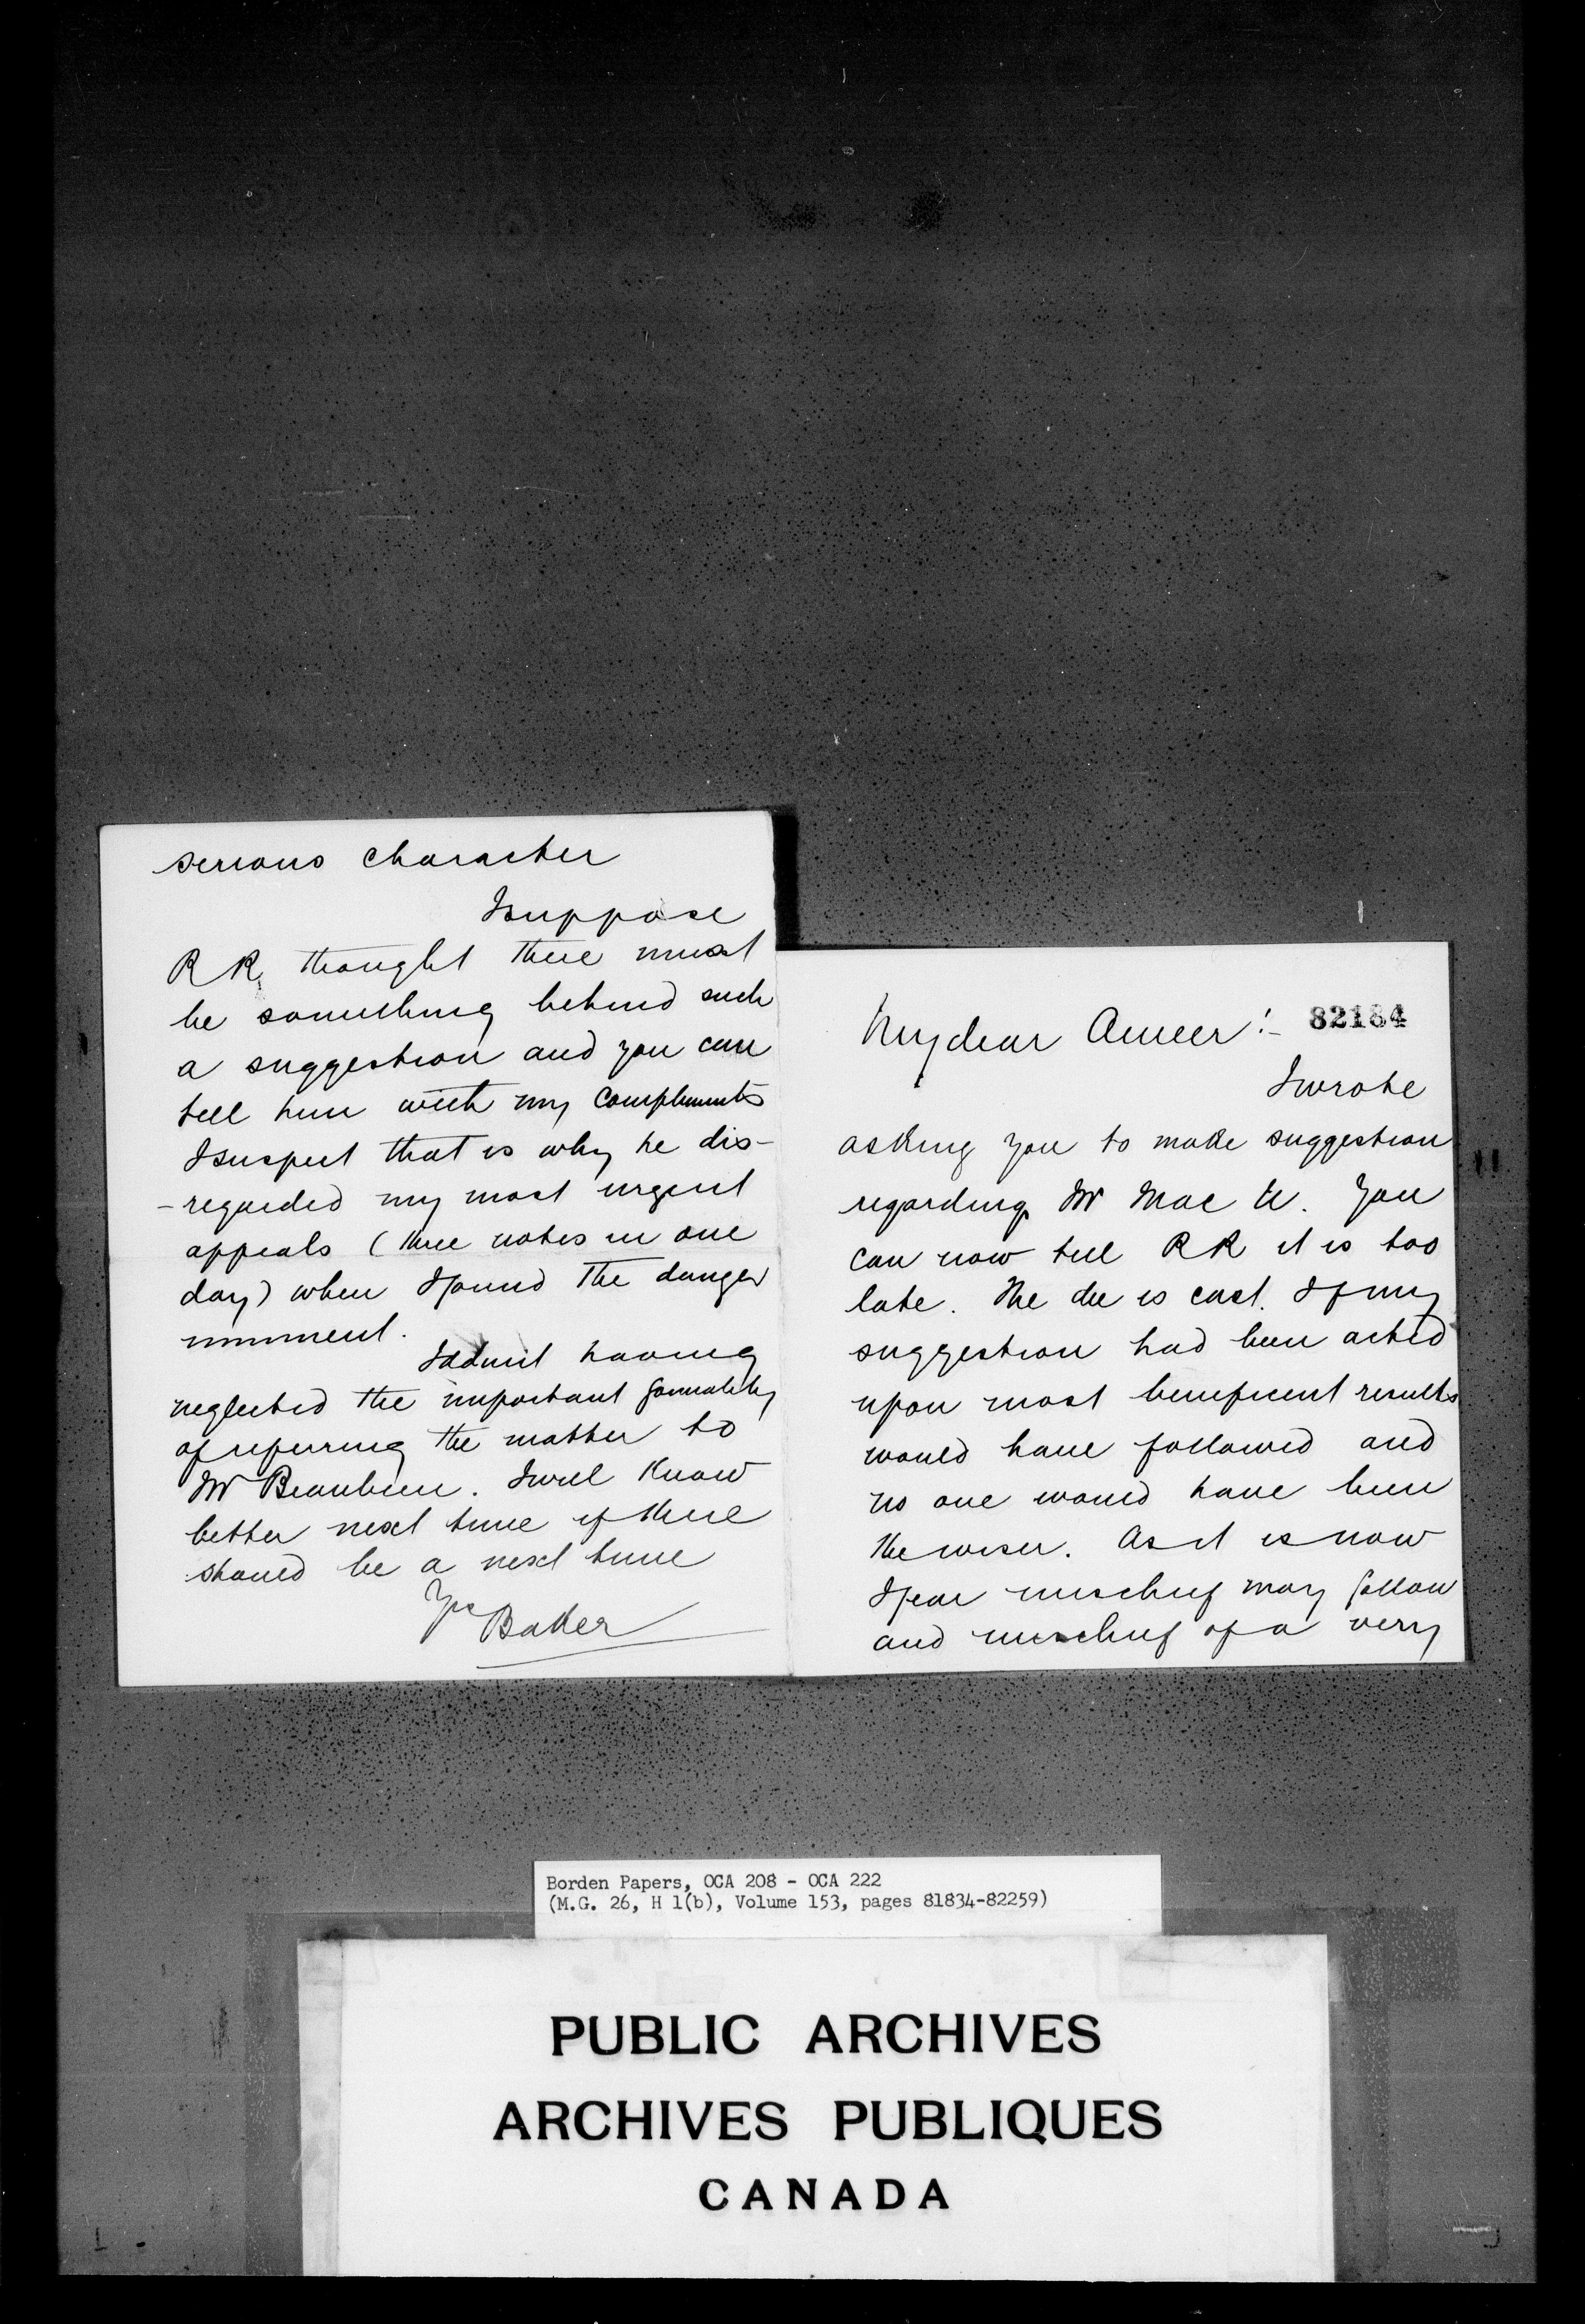 My dear Ameer :- 82184
I wrote
asking you to make suggestion
regarding Mr Mac K. You
can now tell RR it is too
late. The die is cast. If my
suggestion had been acted
upon most beneficent results
would have followed and
no one would have been
the wiser. As it is now
I fear mischief may follow
and mischief of a very
serious character
I suppose
RR thought there must
be something behind such
a suggestion and you can
tell him with my compliments
I suspect that is why he dis-
-regarded my most urgent
appeals (three notes in one
day) when I found the danger
imminent.
I admit having
neglected the important formality
of referring the matter to
Mr Beaubien. I will know
better next time if there
should be a next time
Yrs
Baker
Borden Papers, OCA 208 - OCA 222
(M.G. 26, H 1(b), Volume 153, pages 81834-82259)
PUBLIC ARCHIVES
ARCHIVES PUBLIQUES
CANADA